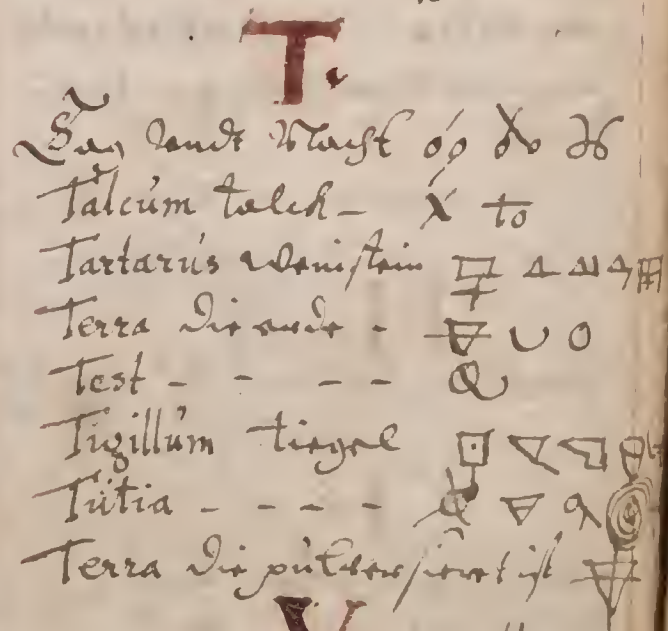 T.
Tag vndt Nacht
Talcúm talck –
Tartarús weinstein
Terra die erde -
Test - - - -
Tigillúm tiegel
Tútia - - - -
Terra die púlverisieret ist
V